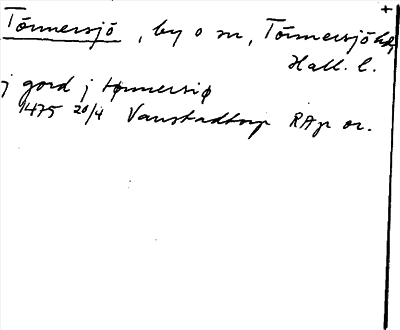 Tönnersjö, by o sn, Tönnersjö hd,
Hall. l.
j gord j tønnersiø
1475 20/4 Vanstadtorp RAp or.